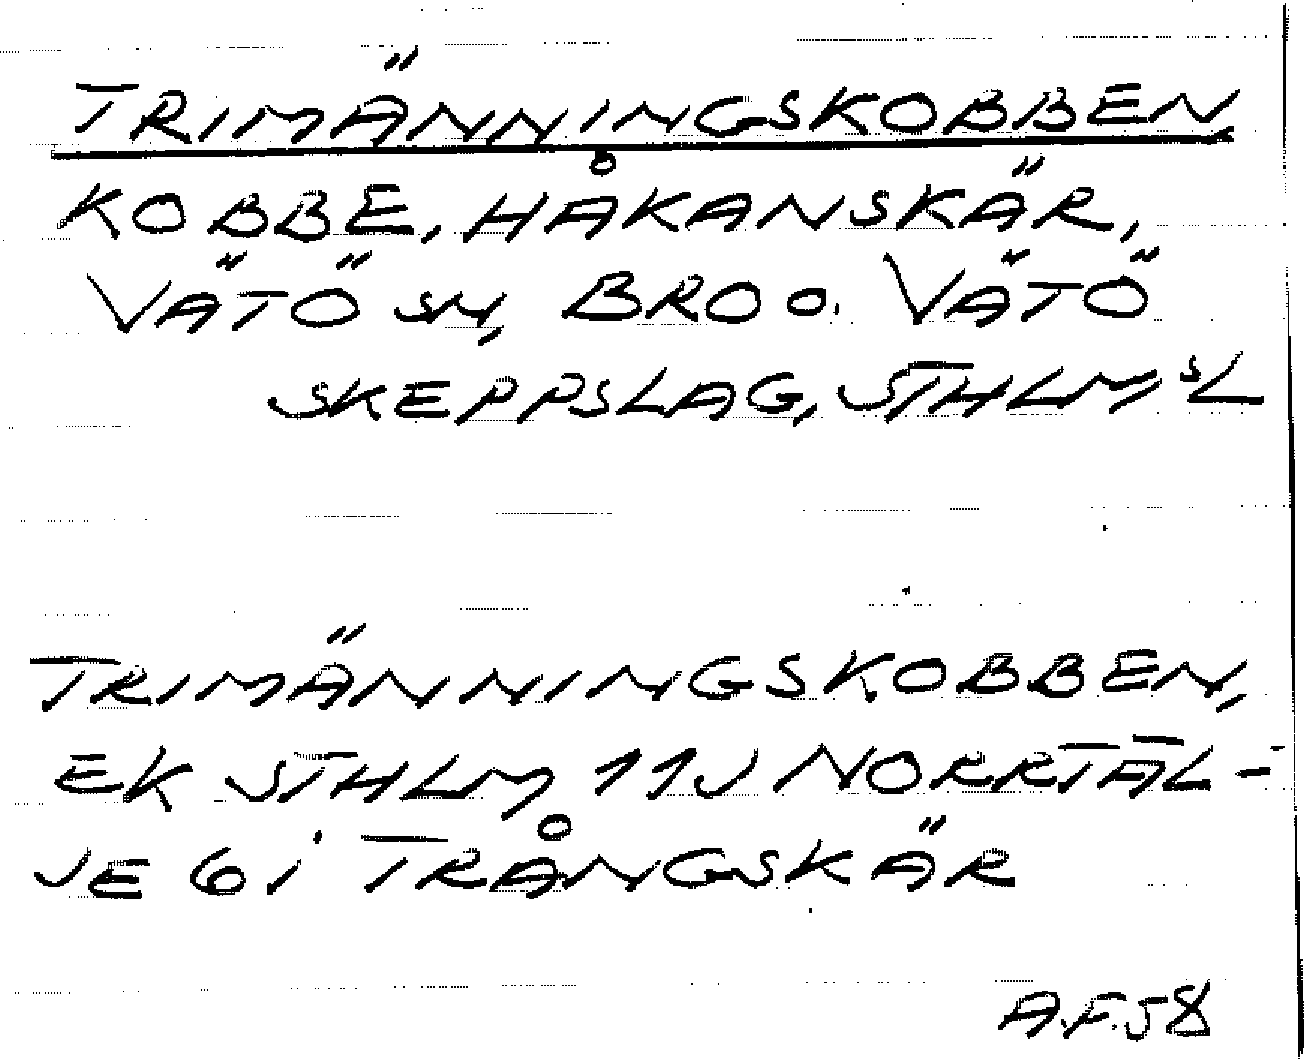 TRIMÄNNINGSKOBBEN
KOBBE, HÅKANSKÄR,
VÄTÖ SN, BRO O. VÄTÖ
SKEPPSLAG, STHLMSL
TRIMÄNNINGSKOBBEN,
EK STHLM 11J NORRTÄL-
JE 6 I TRÅNGSKÄR
A.F. 58